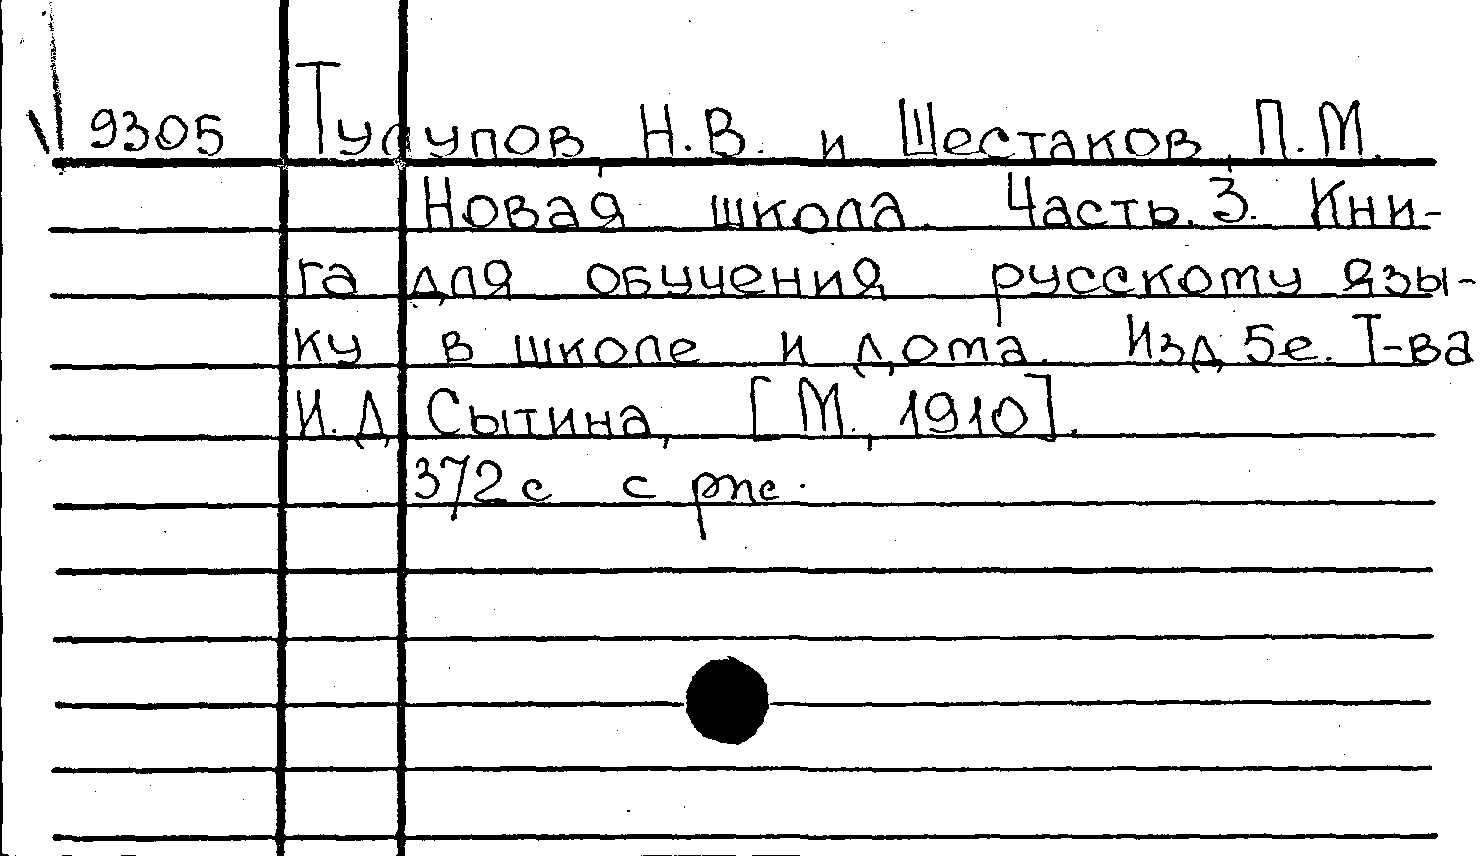 9305 Тулупов, Н.В. и Шестаков, П.М.
Новая школа. Часть. 3. Кни-
га для обучения русскому язы-
ку в школе и дома. Изд. 5е. Т-ва
И.Д. Сытина, [М., 1910].
372с с рис.